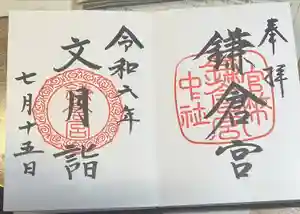 奉拝
鎌倉宮
官幣
中社
令和六年
文月詣
七月十五日